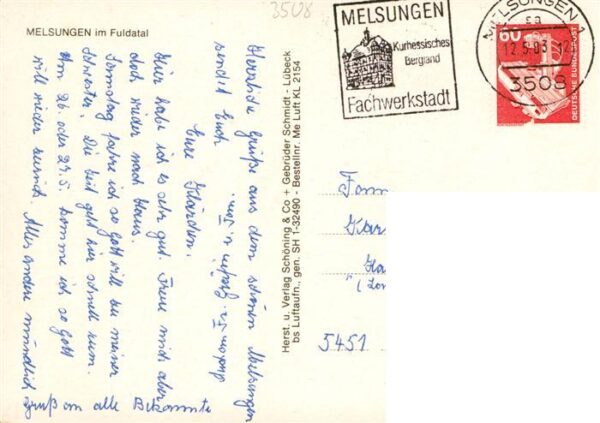 MELSUNGEN im Fuldatal
3508
MELSUNGEN
Kurhessisches
Bergland
Fachwerkstadt
MELSUNGEN
sa
12.5.83
3508
60
DEUTSCHE BUNDESPOST
Herzliche Grüße aus dem schönen Melsungen
sendet Euch
Eure
Hier habe ich es sehr gut. Freue mich aber
doch wieder nach Haus.
Samstag fahre ich so Gott will zu meiner
Schwester. Die Zeit geht hier schnell rum.
Am 26. oder 27.5. komme ich so Gott
will wieder zurück. Alles andere mündlich
Gruß an alle Bekannte
Herst. u. Verlag Schöning & Co + Gebrüder Schmidt - Lübeck
bs Luftaufn., gen. SH 1-32490 - Bestellnr. Me Luft KL 2154
Fam
Kar
5451